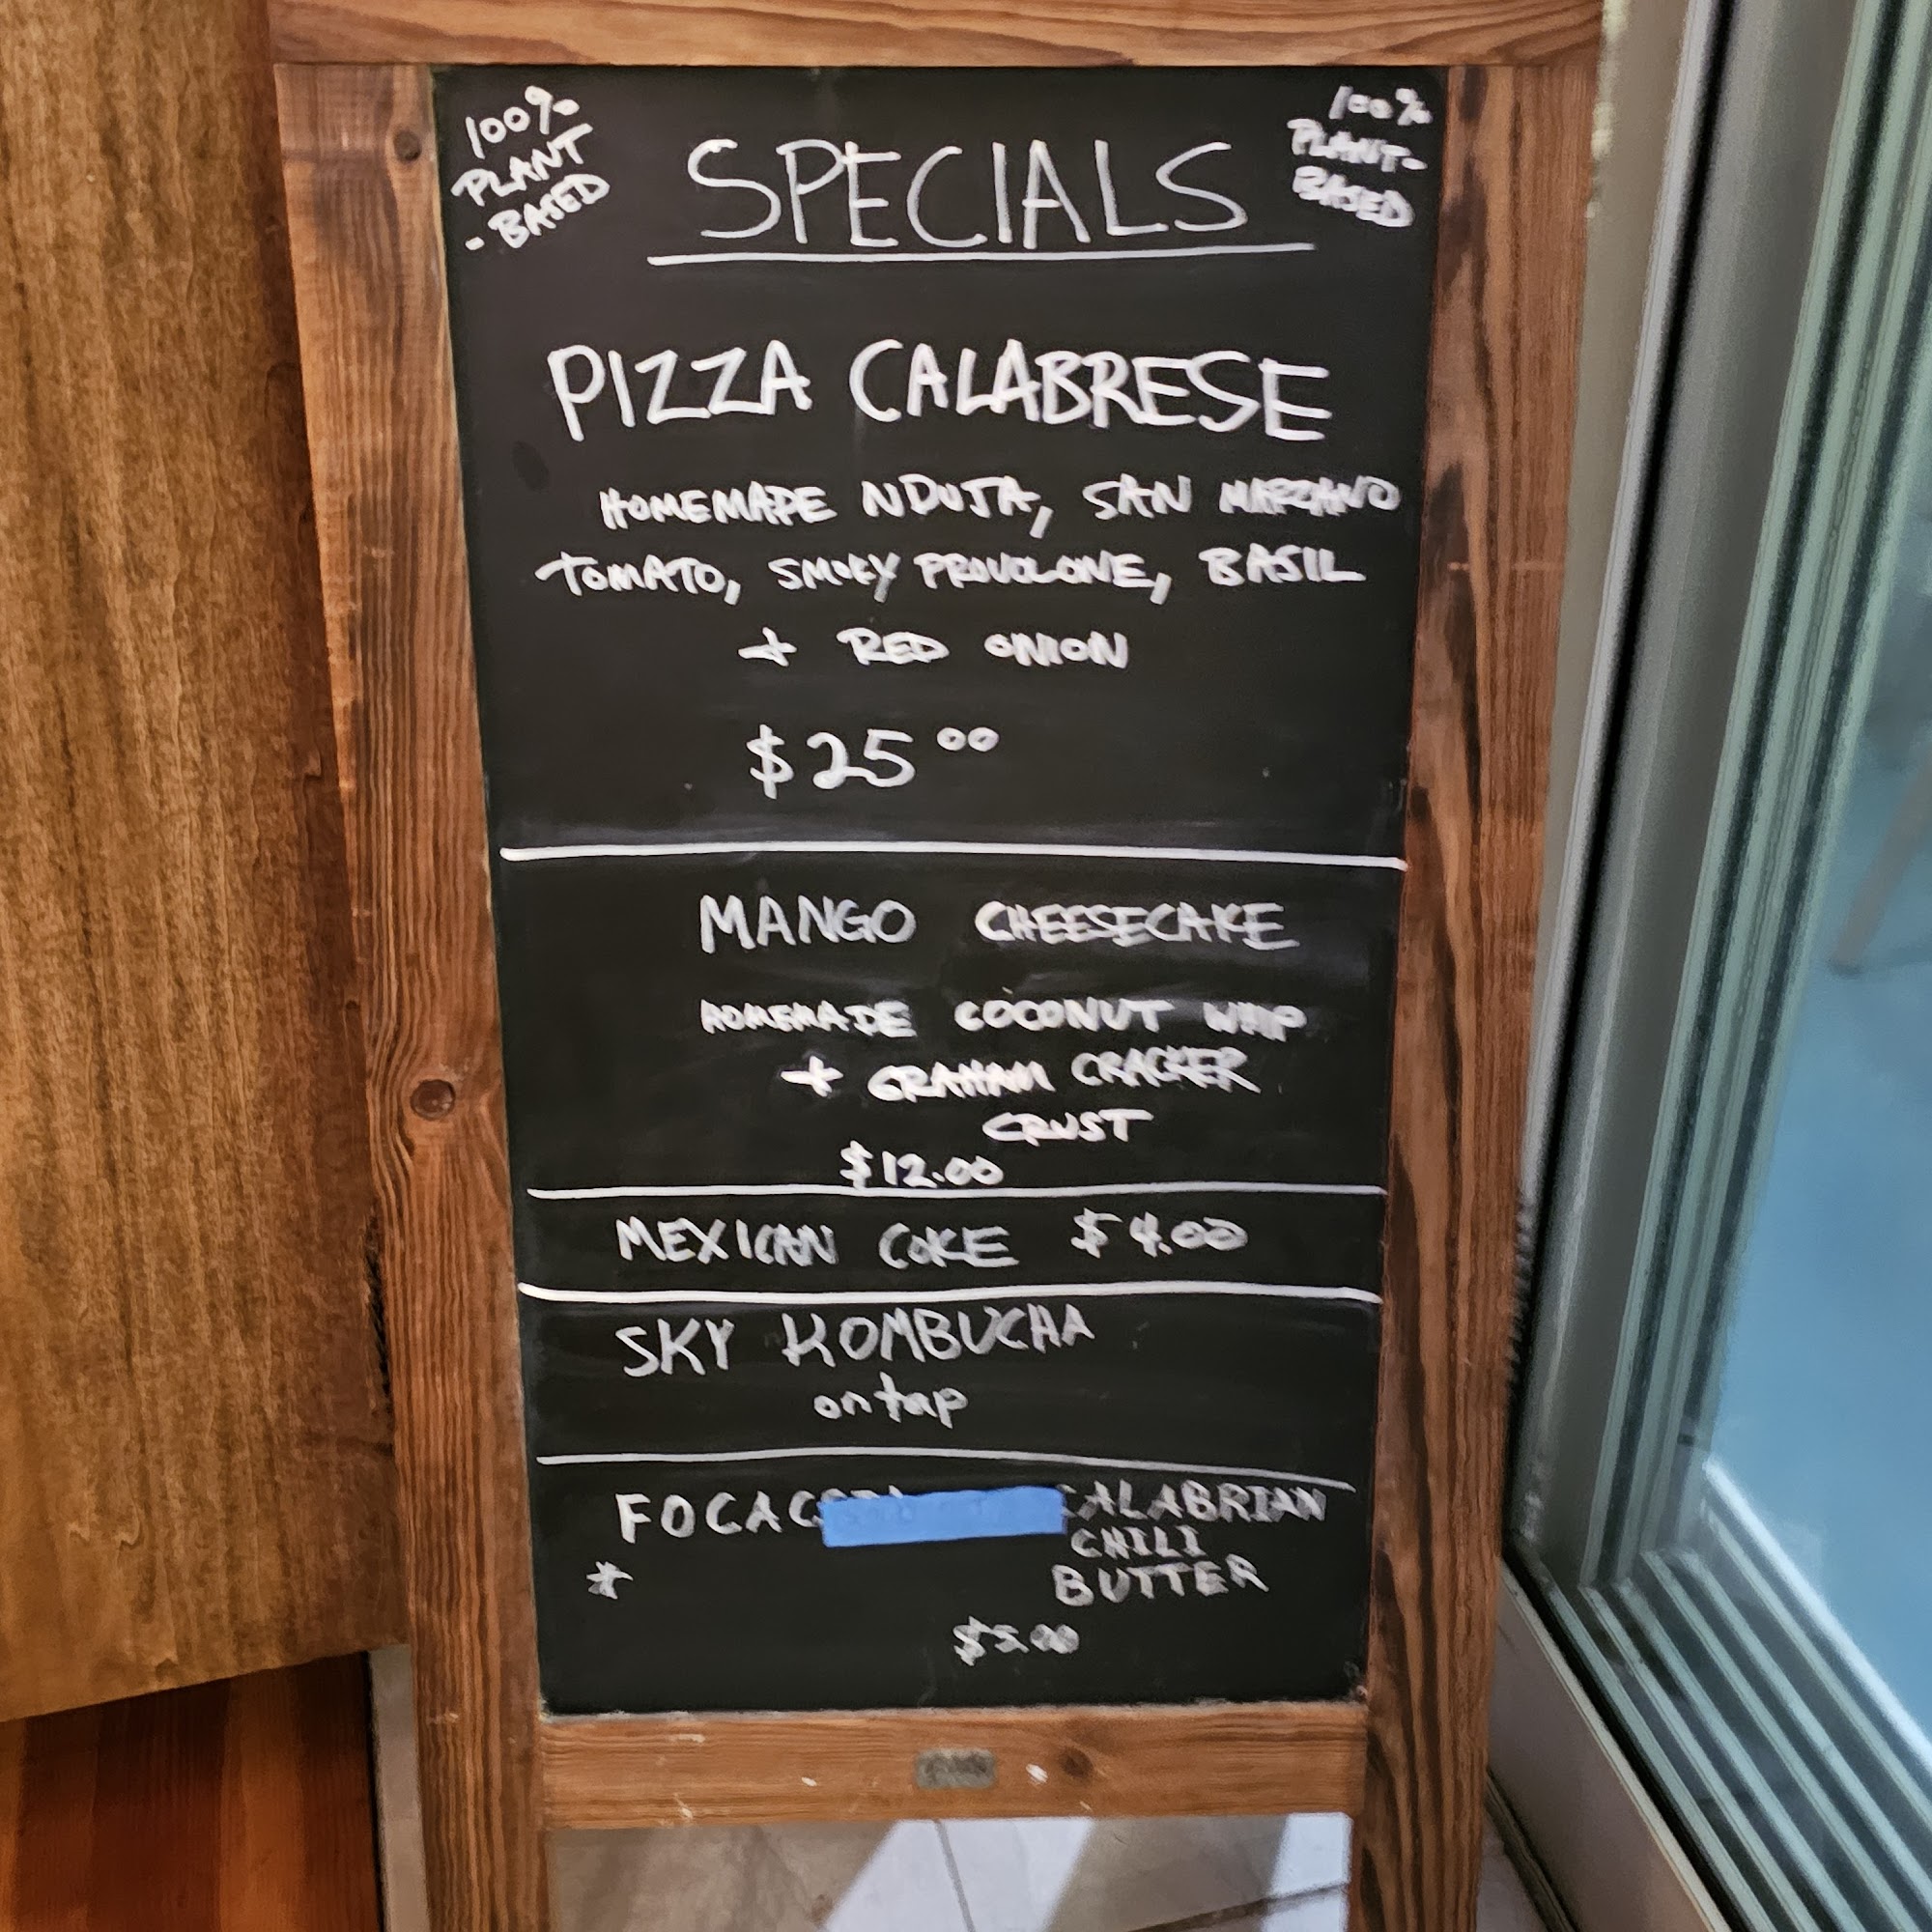 100%
PLANT
-BASED
100%
PLANT-
BASED
SPECIALS
PIZZA CALABRESE
HOMEMADE NDUJA, SAN MARZANO
TOMATO, SMOKY PROVOLONE, BASIL
+ RED ONION
$25 00
MANGO CHEESECAKE
HOMEMADE COCONUT WHIP
+ GRAHAM CRACKER
CRUST
$12.00
MEXICAN COKE $4.00
SKY KOMBUCHA
on tap
CALABRIAN
CHILI
*
BUTTER
$5.00